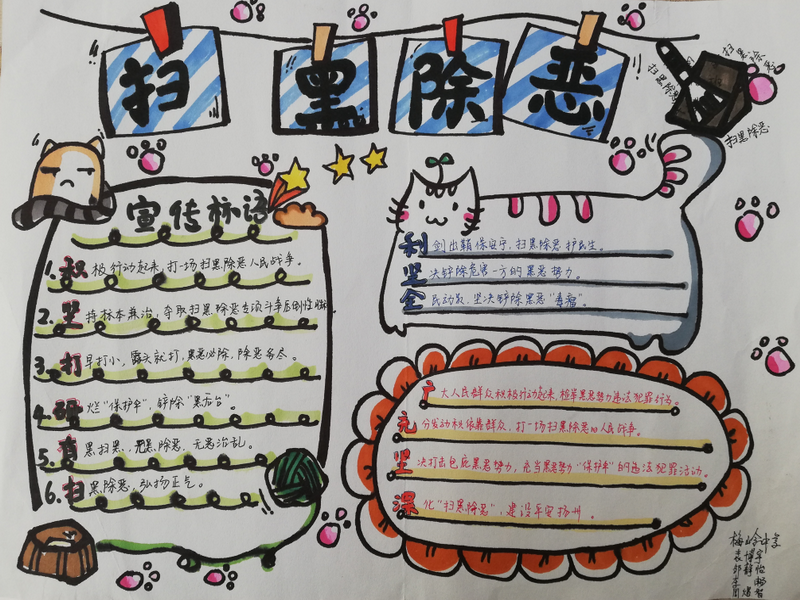 扫黑除恶
扫黑除恶
扫黑除恶
扫黑除恶
宣传标语
1.积极行动起来,打一场扫黑除恶人民战争。
2.坚持标本兼治,夺取扫黑除恶专项斗争压倒性胜
3.打早打小,露头就打,黑恶必除,除恶务尽。
4.砸烂"保护伞",铲除"黑后台"。
5.有黑扫黑,无黑除恶,无恶治乱。
6.扫黑除恶,弘扬正气。
利剑出鞘保安宁,扫黑除恶护民生。
坚决铲除危害一方的黑恶势力。
全民动员,坚决铲除黑恶"毒瘤"。
广大人民群众积极行动起来,检举黑恶势力违法犯罪行为。
充分发动和依靠群众,打一场扫黑除恶的人民战争。
坚决打击包庇黑恶势力、充当黑恶势力"保护伞"的违法犯罪活动。
深化"扫黑除恶",建设平安扬州。
梅岭中学
袁博宇